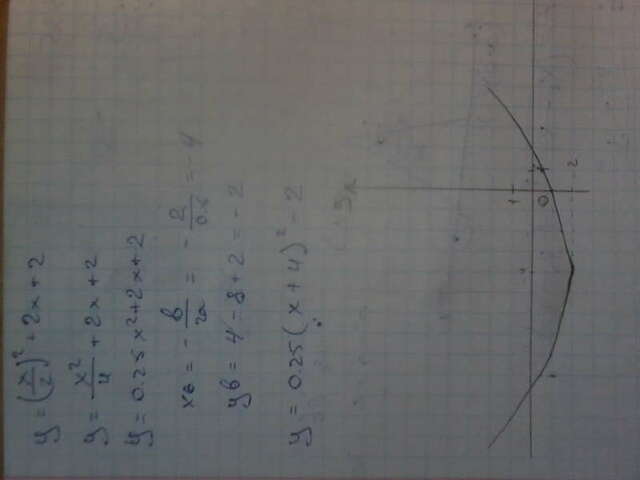 y = (x/2)² + 2x + 2
y = x²/4 + 2x + 2
y = 0.25x² + 2x + 2
xв = - b/2a = - 2/0.5 = -4
yв = 4 - 8 + 2 = -2
y = 0.25(x + 4)² - 2
1
0
-2